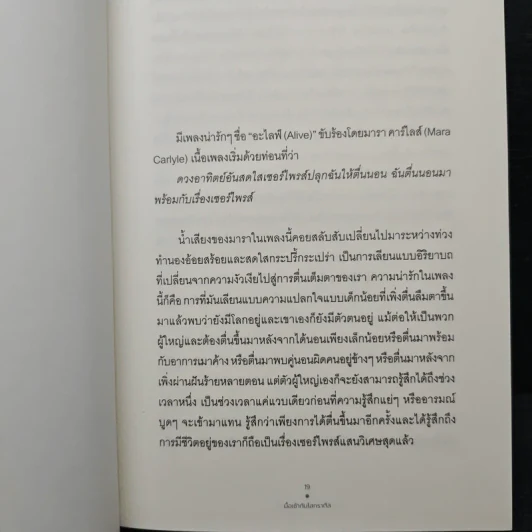 มีเพลงน่ารักๆ ชื่อ “อะไลฟ์ (Alive)” ขับร้องโดยมารา คาร์ไลส์ (Mara
Carlyle) เนื้อเพลงเริ่มด้วยท่อนที่ว่า
ดวงอาทิตย์อันสดใสเซอร์ไพรส์ปลุกฉันให้ตื่นนอน ฉันตื่นนอนมา
พร้อมกับเรื่องเซอร์ไพรส์
น้ำเสียงของมาราในเพลงนี้คอยสลับสับเปลี่ยนไปมาระหว่างท่วง
ทำนองอ้อยสร้อยและสดใสกระปรี้กระเปร่า เป็นการเลียนแบบอิริยาบถ
ที่เปลี่ยนจากความงัวเงียไปสู่การตื่นเต็มตาของเรา ความน่ารักในเพลง
นี้ก็คือ การที่มันเลียนแบบความแปลกใจแบบเด็กน้อยที่เพิ่งตื่นลืมตาขึ้น
มาแล้วพบว่ายังมีโลกอยู่และเขาเองก็ยังมีตัวตนอยู่ แม้ต่อให้เป็นพวก
ผู้ใหญ่และต้องตื่นขึ้นมาหลังจากได้นอนเพียงเล็กน้อยหรือตื่นมาพร้อม
กับอาการเมาค้าง หรือตื่นมาพบคู่นอนผิดคนอยู่ข้างๆ หรือตื่นมาหลังจาก
เพิ่งผ่านฝันร้ายหลายตอน แต่ตัวผู้ใหญ่เองก็จะยังสามารถรู้สึกได้ถึงช่วง
เวลาหนึ่ง เป็นช่วงเวลาแค่แวบเดียวก่อนที่ความรู้สึกแย่ๆ หรืออารมณ์
บูดๆ จะเข้ามาแทน รู้สึกว่าเพียงการได้ตื่นขึ้นมาอีกครั้งและได้รู้สึกถึง
การมีชีวิตอยู่ของเราก็ถือเป็นเรื่องเซอร์ไพรส์แสนวิเศษสุดแล้ว
19